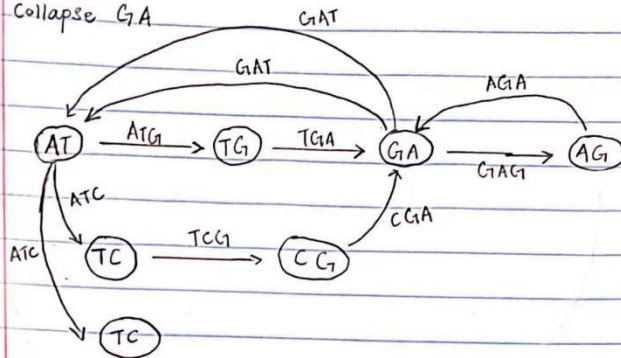 Collapse GA
GAT
GAT
AGA
AT
ATG
TG
TGA
GA
GAG
AG
ATC
ATC
TC
TCG
CG
CGA
TC